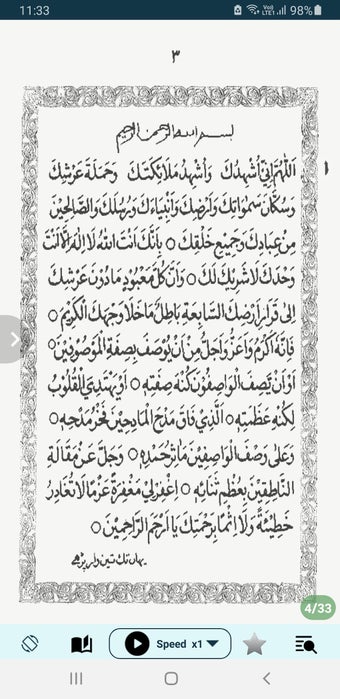 11:33
98%
٣
بسم الله الرحمن الرحيم
اَللّٰهُمَّ اِنِّيْ اُشْهِدُكَ وَاُشْهِدُ مَلَائِكَتَكَ وَحَمَلَةَ عَرْشِكَ
وَسُكَّانَ سَمٰوَاتِكَ وَاَرْضِكَ وَاَنْبِيَاءَكَ وَرُسُلَكَ وَالصَّالِحِيْنَ
مِنْ عِبَادِكَ وَجَمِيْعِ خَلْقِكَ ○ بِاَنَّكَ اَنْتَ اللّٰهُ لَا اِلٰهَ اِلَّا اَنْتَ
وَحْدَكَ لَا شَرِيْكَ لَكَ ○ وَاَنَّ كُلَّ مَعْبُوْدٍ مَا دُوْنَ عَرْشِكَ
اِلٰى قَرَارِ اَرْضِكَ السَّابِعَةِ بَاطِلٌ مَاخَلَا وَجْهَكَ الْكَرِيْمَ ○
فَاِنَّهُ اَكْرَمُ وَاَعَزُّ وَاَجَلُّ مِنْ اَنْ يُوْصَفَ بِصِفَةِ الْمَوْصُوْفِيْنَ ○
اَوْ اَنْ يَّصِفَ الْوَاصِفُوْنَ كُنْهَ صِفَتِهِ ○ اَوْ يَهْتَدِيَ الْقُلُوْبُ
لِكُنْهِ عَظَمَتِهِ ○ اَلَّذِيْ فَاقَ مَدْحَ الْمَادِحِيْنَ فَخْرُ مَدْحِهِ ○
وَعَلٰى وَصْفَ الْوَاصِفِيْنَ مَاٰثِرُ حَمْدِهِ ○ وَجَلَّ عَنْ مَقَالَةِ
النَّاطِقِيْنَ بِعُظْمِ ثَنَائِهِ ○ اِغْفِرْ لِيْ مَغْفِرَةً عَزْمًا لَا تُغَادِرُ
خَطِيْئَةً وَلَا اِثْمًا بِرَحْمَتِكَ يَا اَرْحَمَ الرَّاحِمِيْنَ ○
يهان تك تين وار پڑهے
4/33
Speed x1